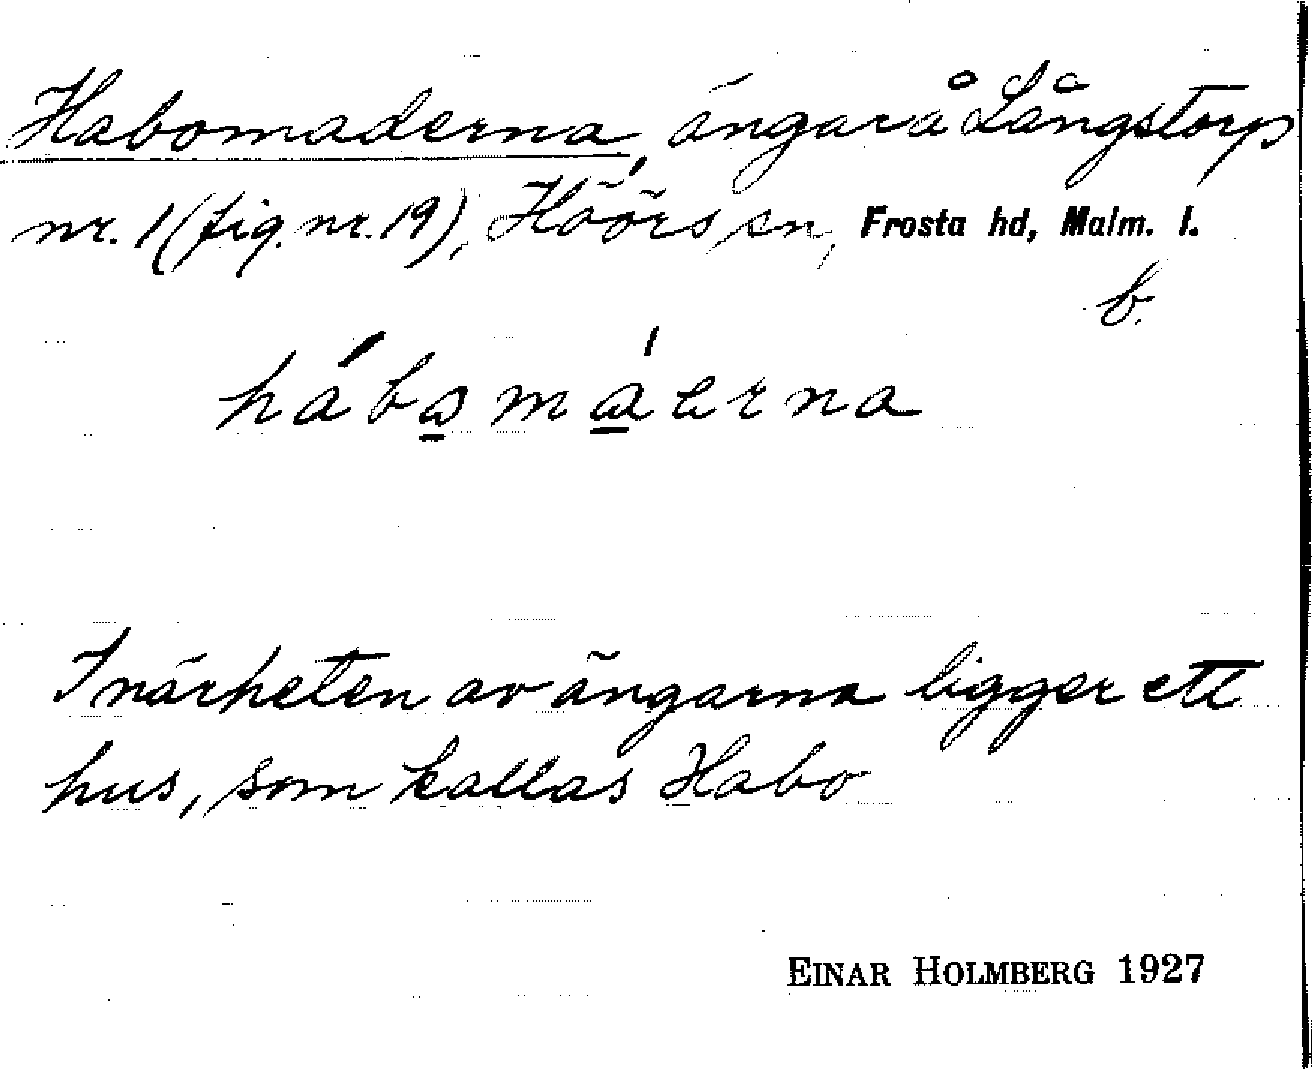 Habomaderna, ängar å Långstorp
nr. 1 (fig. nr. 19), Höörs sn, Frosta hd, Malm. l.
b.
hábamáerna
I närheten av ängarna ligger ett
hus, som kallas Habo
EINAR HOLMBERG 1927